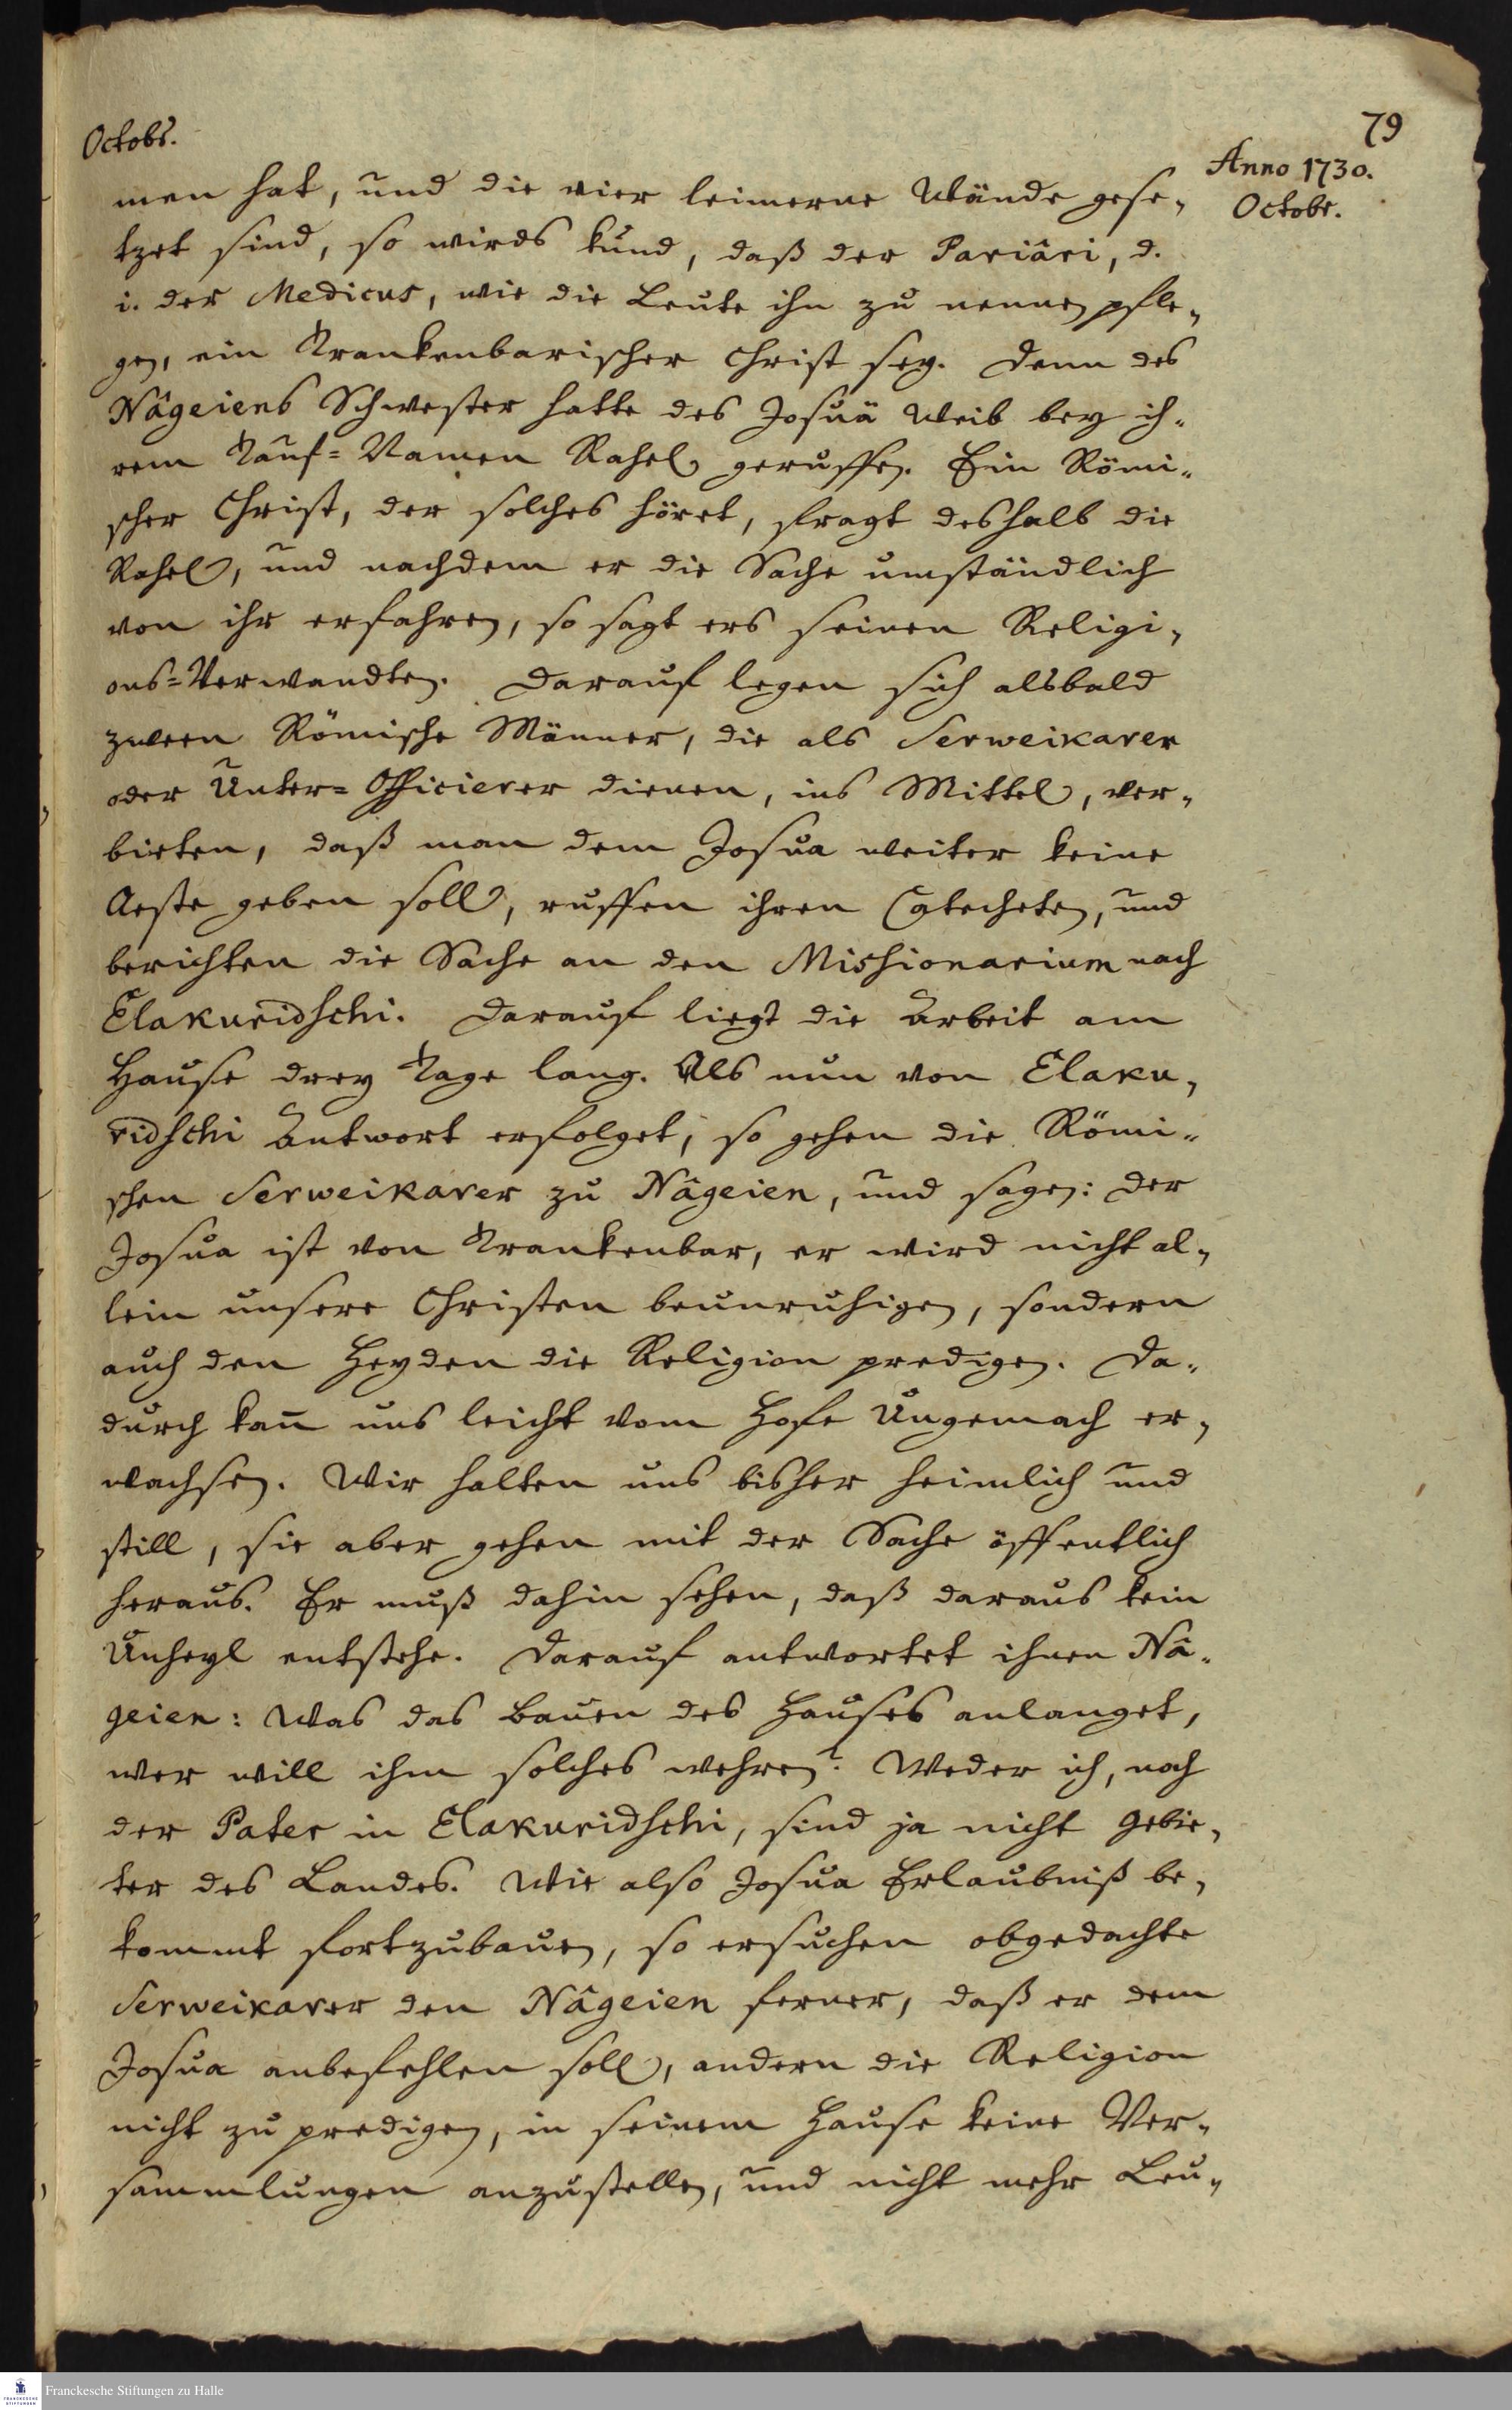 79
Octobr.
Anno 1730.
Octobr.
men hat, und die vier leimerne Wände gese-
tzet sind, so wirds kund, daß der Pariâri, d.
i. der Medicus, wie die Leute ihn zu nennen pfle-
gen, ein Trankenbarischer Christ sey. Denn des
Nâgeiens Schwester hatte des Josuä Weib bey ih-
rem Tauf-Namen Rahel geruffen. Ein Römi-
scher Christ, der solches höret, fragt deshalb die
Rahel, und nachdem er die Sache umständlich
von ihr erfahren, so sagt ers seinen Religi-
ons-Verwandten. Darauf legen sich alsbald
zween Römische Männer, die als Serweikarer
oder Unter-Officierer dienen, ins Mittel, ver-
bieten, daß man dem Josua weiter keine
Aeste geben soll, ruffen ihren Catecheten, und
berichten die Sache an den Missionarium nach
Elakuridschi. Darauf liegt die Arbeit am
Hause drey Tage lang. Als nun von Elaku-
ridschi Antwort erfolget, so gehen die Römi-
schen Serweikarer zu Nâgeien, und sagen: Der
Josua ist von Trankenbar, er wird nicht al-
lein unsere Christen beunruhigen, sondern
auch den Heyden die Religion predigen. Da-
durch kañ uns leicht vom Hofe Ungemach er-
wachsen. Wir halten uns bisher heimlich und
still, sie aber gehen mit der Sache öffentlich
heraus. Er muß dahin sehen, daß daraus kein
Unheyl entstehe. Darauf antwortet ihnen Nâ-
geien: Was das Bauen des Hauses anlanget,
wer will ihm solches wehren? Weder ich, noch
der Pater in Elakuridschi, sind ja nicht Gebie-
ter des Landes. Wie also Josua Erlaubniß be-
kommt fortzubauen, so ersuchen obgedachte
Serweikarer den Nâgeien ferner, daß er dem
Josua anbefehlen soll, andern die Religion
nicht zu predigen, in seinem Hause keine Ver-
sammlungen anzustellen, und nicht mehr Leu-
Franckesche Stiftungen zu Halle